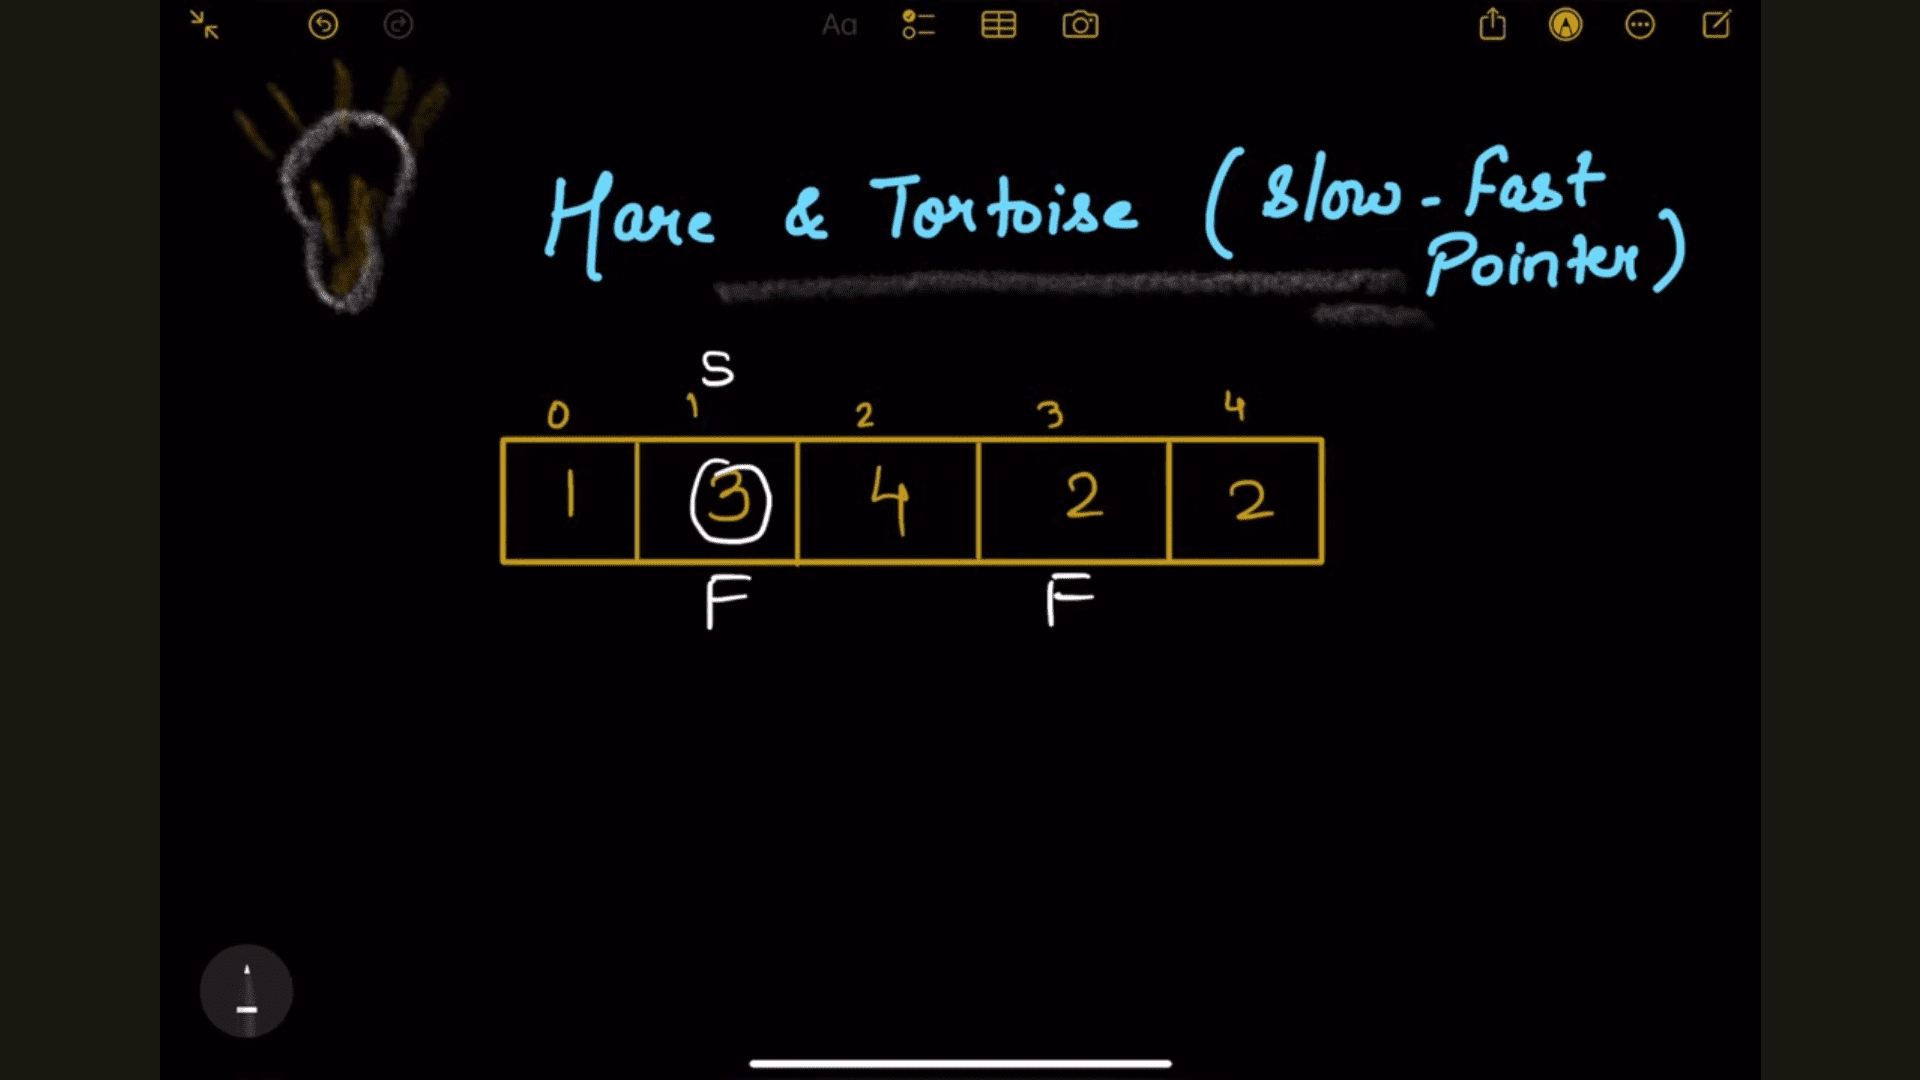 Aa
Hare & Tortoise (Slow-Fast
Pointer)
S
0 1 2 3 4
1 3 4 2 2
F F